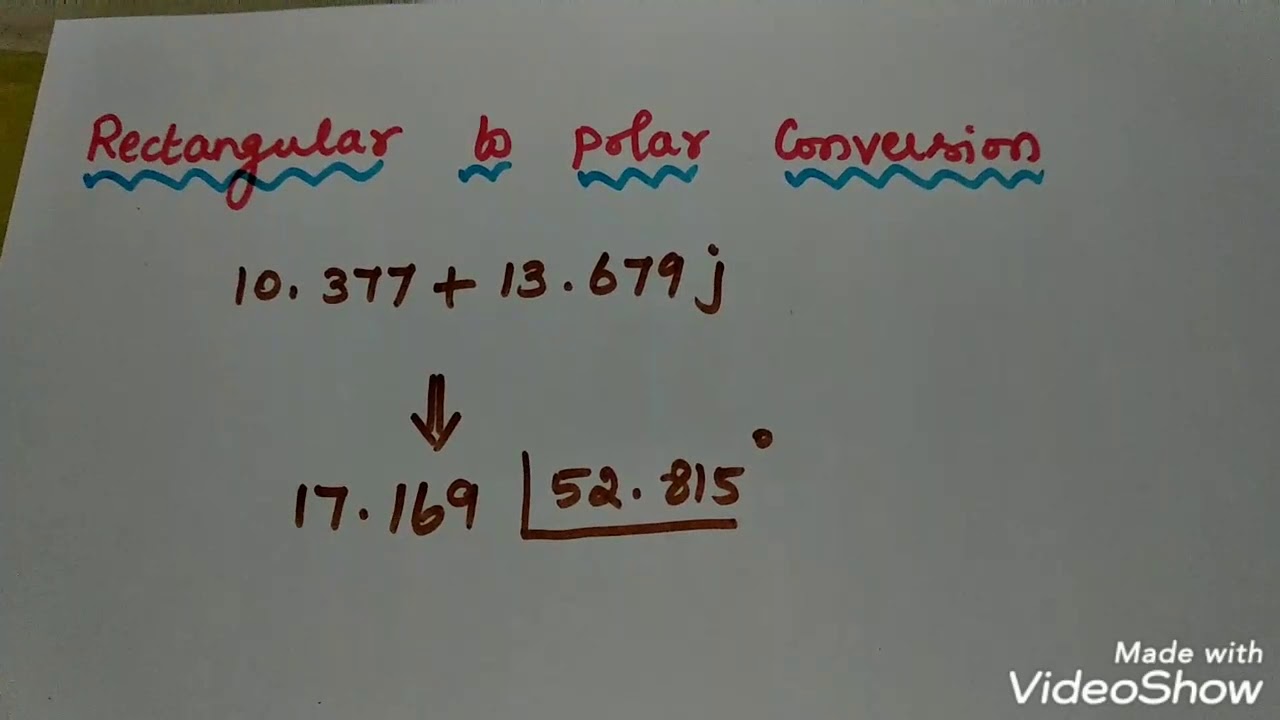 Rectangular to polar Conversion
10.377 + 13.679j
⇓
17.169 ∠52.815°
Made with
VideoShow